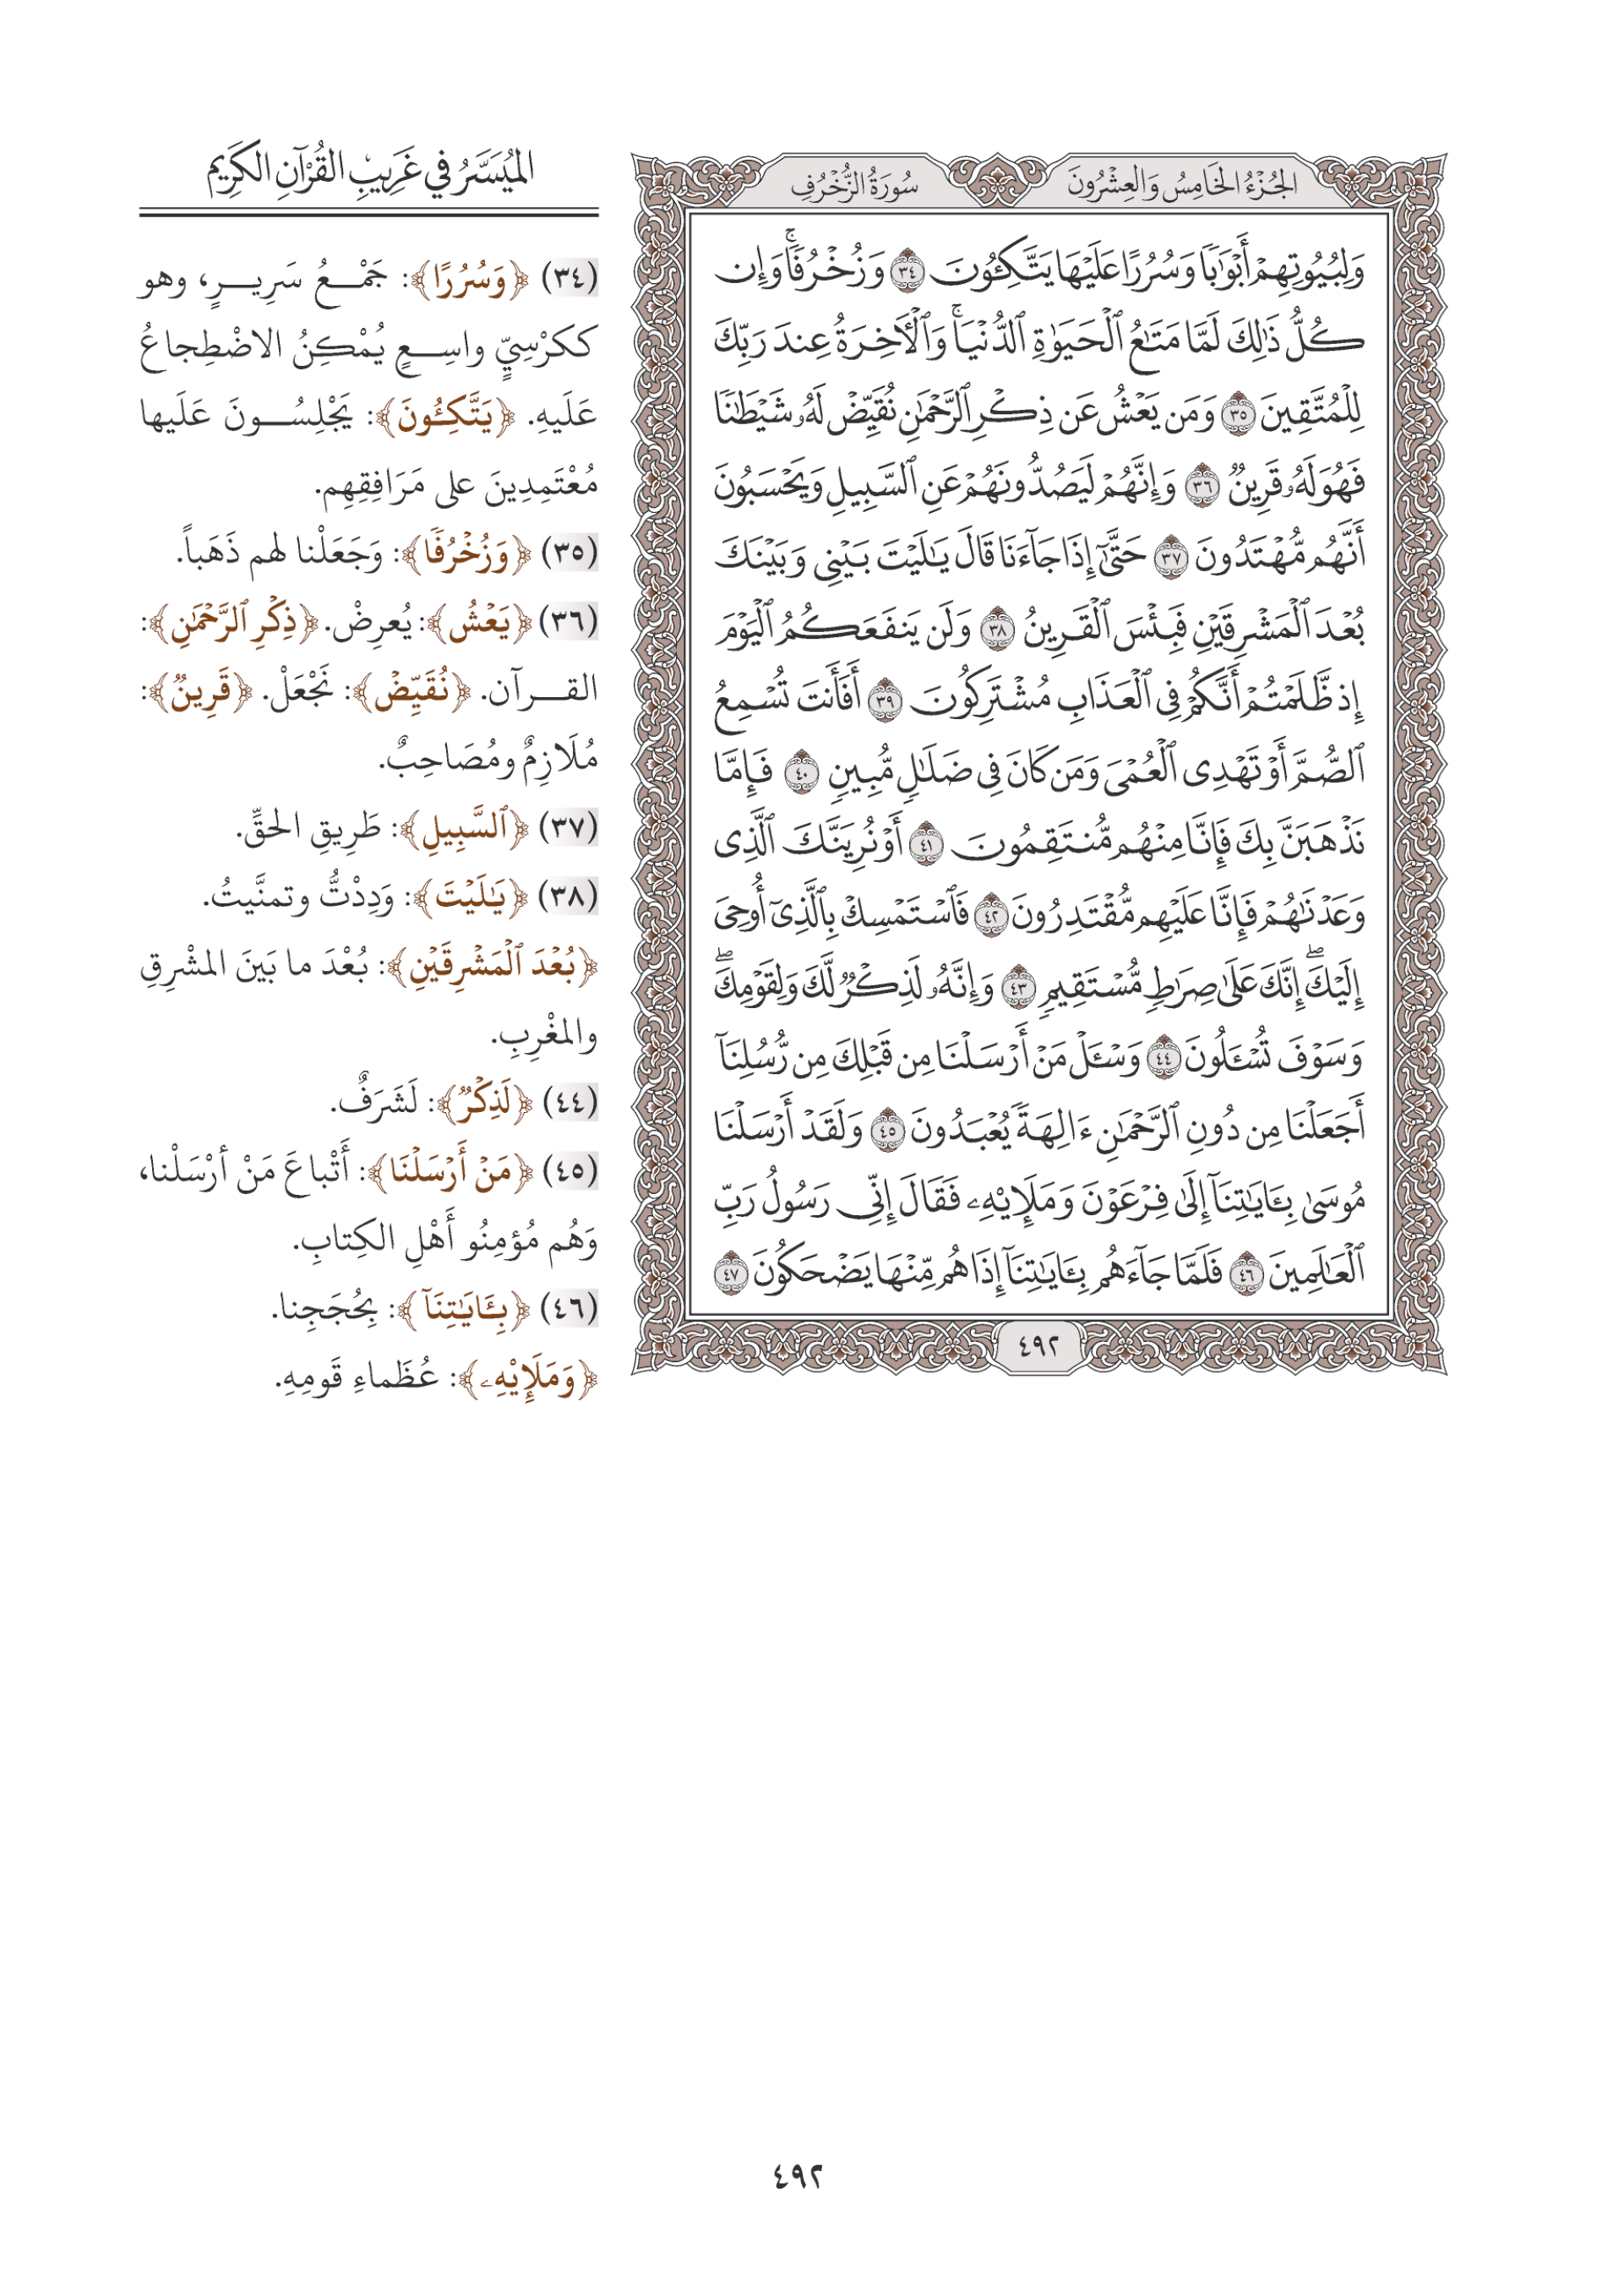 الجُزْءُ الخَامِسُ وَالعِشْرُونَ
سُورَةُ الزُّخْرُفِ
وَلِبُيُوتِهِمْ أَبْوَٰبًا وَسُرُرًا عَلَيْهَا يَتَّكِـُٔونَ ٣٤ وَزُخْرُفًا ۚ وَإِن
كُلُّ ذَٰلِكَ لَمَّا مَتَـٰعُ ٱلْحَيَوٰةِ ٱلدُّنْيَا ۚ وَٱلْـَٔاخِرَةُ عِندَ رَبِّكَ
لِلْمُتَّقِينَ ٣٥ وَمَن يَعْشُ عَن ذِكْرِ ٱلرَّحْمَـٰنِ نُقَيِّضْ لَهُۥ شَيْطَـٰنًا
فَهُوَ لَهُۥ قَرِينٌ ٣٦ وَإِنَّهُمْ لَيَصُدُّونَهُمْ عَنِ ٱلسَّبِيلِ وَيَحْسَبُونَ
أَنَّهُم مُّهْتَدُونَ ٣٧ حَتَّىٰٓ إِذَا جَآءَنَا قَالَ يَـٰلَيْتَ بَيْنِى وَبَيْنَكَ
بُعْدَ ٱلْمَشْرِقَيْنِ فَبِئْسَ ٱلْقَرِينُ ٣٨ وَلَن يَنفَعَكُمُ ٱلْيَوْمَ
إِذ ظَّلَمْتُمْ أَنَّكُمْ فِى ٱلْعَذَابِ مُشْتَرِكُونَ ٣٩ أَفَأَنتَ تُسْمِعُ
ٱلصُّمَّ أَوْ تَهْدِى ٱلْعُمْىَ وَمَن كَانَ فِى ضَلَـٰلٍ مُّبِينٍ ٤٠ فَإِمَّا
نَذْهَبَنَّ بِكَ فَإِنَّا مِنْهُم مُّنتَقِمُونَ ٤١ أَوْ نُرِيَنَّكَ ٱلَّذِى
وَعَدْنَـٰهُمْ فَإِنَّا عَلَيْهِم مُّقْتَدِرُونَ ٤٢ فَٱسْتَمْسِكْ بِٱلَّذِىٓ أُوحِىَ
إِلَيْكَ ۖ إِنَّكَ عَلَىٰ صِرَٰطٍ مُّسْتَقِيمٍ ٤٣ وَإِنَّهُۥ لَذِكْرٌ لَّكَ وَلِقَوْمِكَ ۖ
وَسَوْفَ تُسْـَٔلُونَ ٤٤ وَسْـَٔلْ مَنْ أَرْسَلْنَا مِن قَبْلِكَ مِن رُّسُلِنَآ
أَجَعَلْنَا مِن دُونِ ٱلرَّحْمَـٰنِ ءَالِهَةً يُعْبَدُونَ ٤٥ وَلَقَدْ أَرْسَلْنَا
مُوسَىٰ بِـَٔايَـٰتِنَآ إِلَىٰ فِرْعَوْنَ وَمَلَإِي۟هِۦ فَقَالَ إِنِّى رَسُولُ رَبِّ
ٱلْعَـٰلَمِينَ ٤٦ فَلَمَّا جَآءَهُم بِـَٔايَـٰتِنَآ إِذَا هُم مِّنْهَا يَضْحَكُونَ ٤٧
٤٩٢
المُيَسَّرُ في غَرِيبِ القُرْآنِ الكَرِيم
(٣٤) ﴿وَسُرُرًا﴾: جَمْعُ سَرِيرٍ، وهو
ككرْسِيٍّ واسِعٍ يُمْكِنُ الاضْطِجاعُ
عَلَيهِ. ﴿يَتَّكِـُٔونَ﴾: يَجْلِسُونَ عَلَيها
مُعْتَمِدِينَ على مَرَافِقِهِم.
(٣٥) ﴿وَزُخْرُفًا﴾: وَجَعَلْنا لهم ذَهَباً.
(٣٦) ﴿يَعْشُ﴾: يُعرِضْ. ﴿ذِكْرِ ٱلرَّحْمَـٰنِ﴾:
القرآن. ﴿نُقَيِّضْ﴾: نَجْعَلْ. ﴿قَرِينٌ﴾:
مُلَازِمٌ ومُصَاحِبٌ.
(٣٧) ﴿ٱلسَّبِيلِ﴾: طَرِيقِ الحقِّ.
(٣٨) ﴿يَـٰلَيْتَ﴾: وَدِدْتُّ وتمنَّيتُ.
﴿بُعْدَ ٱلْمَشْرِقَيْنِ﴾: بُعْدَ ما بَينَ المشْرِقِ
والمغْرِبِ.
(٤٤) ﴿لَذِكْرٌ﴾: لَشَرَفٌ.
(٤٥) ﴿مَنْ أَرْسَلْنَا﴾: أَتْباعَ مَنْ أرْسَلْنا،
وَهُم مُؤمِنُو أَهْلِ الكِتابِ.
(٤٦) ﴿بِـَٔايَـٰتِنَآ﴾: بِحُجَجِنا.
﴿وَمَلَإِي۟هِۦ﴾: عُظَماءِ قَومِهِ.
٤٩٢